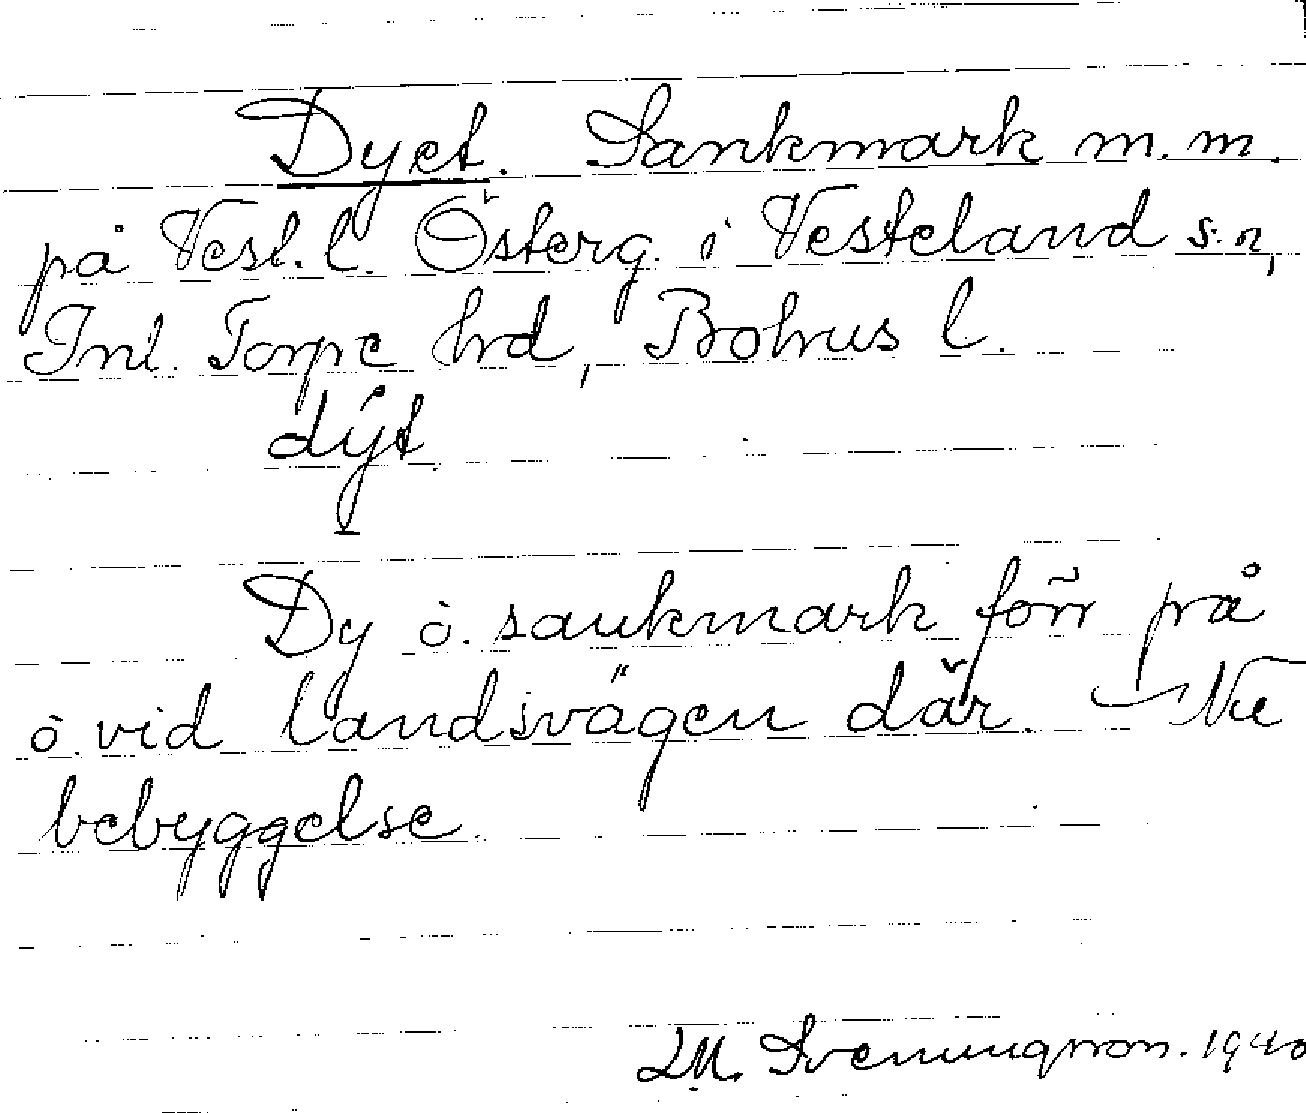 Dyet. Sankmark m. m.
på Vesl. l. Österg. i Vesteland s:n,
Inl. Torpe hrd, Bohus l.
dýt
Dy ò. sankmark förr på
ò. vid landsvägen där. — Nu
bebyggelse.
LM. Svenungsson. 1940